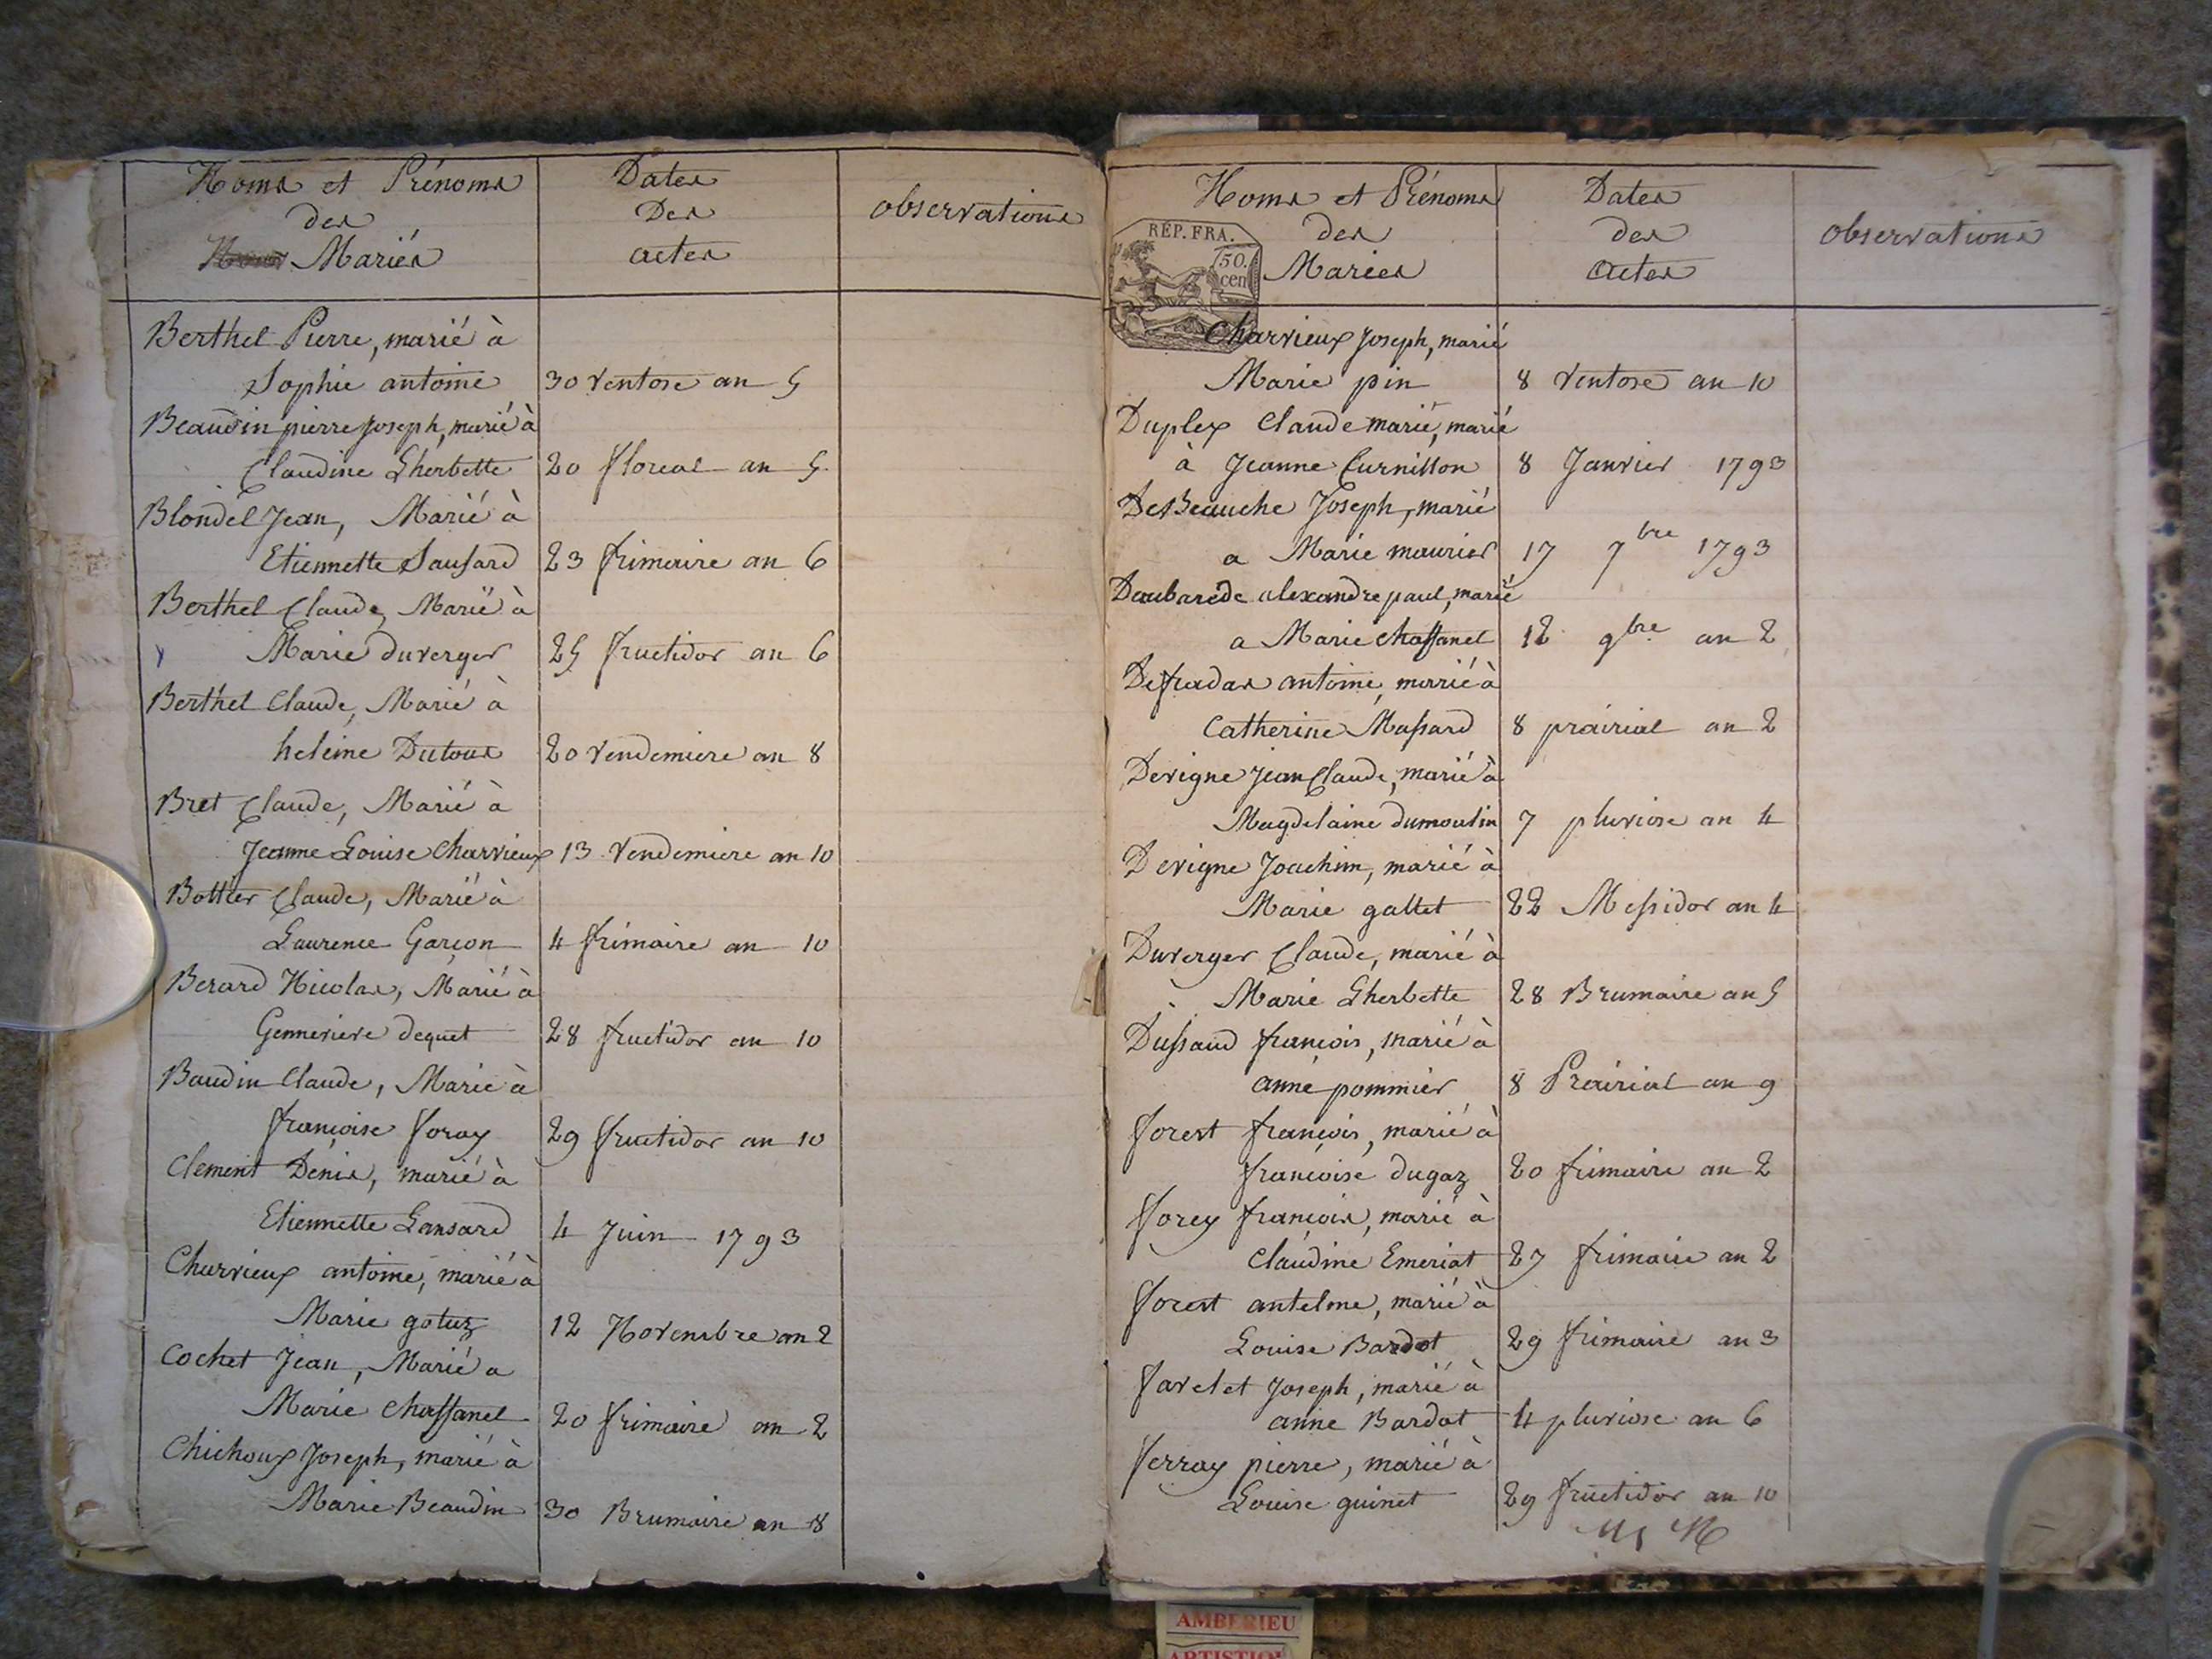 Noms et Prénoms
des
Mariés
Dates
Des
actes
observations
Berthel Pierre, marié à
Sophie antoine 30 Ventose an 5
Beaudin pierre Joseph, marié à
Claudine Lherbette 20 floreal an 5
Blondel Jean, Marié à
Etiennette Sausard 23 frimaire an 6
Berthel Claude, Marié à
Marie duverger 25 fructidor an 6
Berthel Claude, Marié à
heleine Dutour 20 Vendemiere an 8
Bret Claude, Marié à
Jeanne Louise Charvieux 13 Vendemiere an 10
Bottier Claude, Marié à
Laurence Garçon 4 frimaire an 10
Berard Nicolas, Marié à
Genneviere dequet 28 fructidor an 10
Baudin Claude, Marié à
françoise foray 29 fructidor an 10
Clement Denis, marié à
Etiennette Lansard 4 Juin 1793
Charvieux antoine, marié à
Marie gotuz 12 Novembre an 2
Cochet Jean, Marié a
Marie Chassanel 20 frimaire an 2
Chichoux Joseph, marié à
Marie Beaudin 30 Brumaire an 8
Noms et Prénoms
des
Mariés
Dates
des
Actes
observations
RÉP. FRA.
50.
cen
Charvieux Joseph, marié
Marie pin 8 Ventose an 10
Duplex Claude marie, marié
à Jeanne Curnillon 8 Janvier 1793
DesBeauche Joseph, marié
a Marie maurier 17 7bre 1793
Daubarede alexandre paul, marié
a Marie chassanel 12 9bre an 2
Defradas antoine, marié à
Catherine Massard 8 prairial an 2
Devigne Jean Claude, marié à
Magdelaine dumoulin 7 pluviose an 4
Devigne Joachim, marié à
Marie gallet 22 Messidor an 4
Duverger Claude, marié à
Marie Lherbette 28 Brumaire an 5
Dussaud françois, marié à
anne pommier 8 Prairial an 9
forest françois, marié à
françoise dugaz 20 frimaire an 2
forey françois, marié à
Claudine Emeriat 27 frimaire an 2
forest antelme, marié à
Louise Bardot 29 frimaire an 3
favelet Joseph, marié à
anne Bardot 4 pluviose an 6
ferray pierre, marié à
Louise guinet 29 fructidor an 10
AMBERIEU